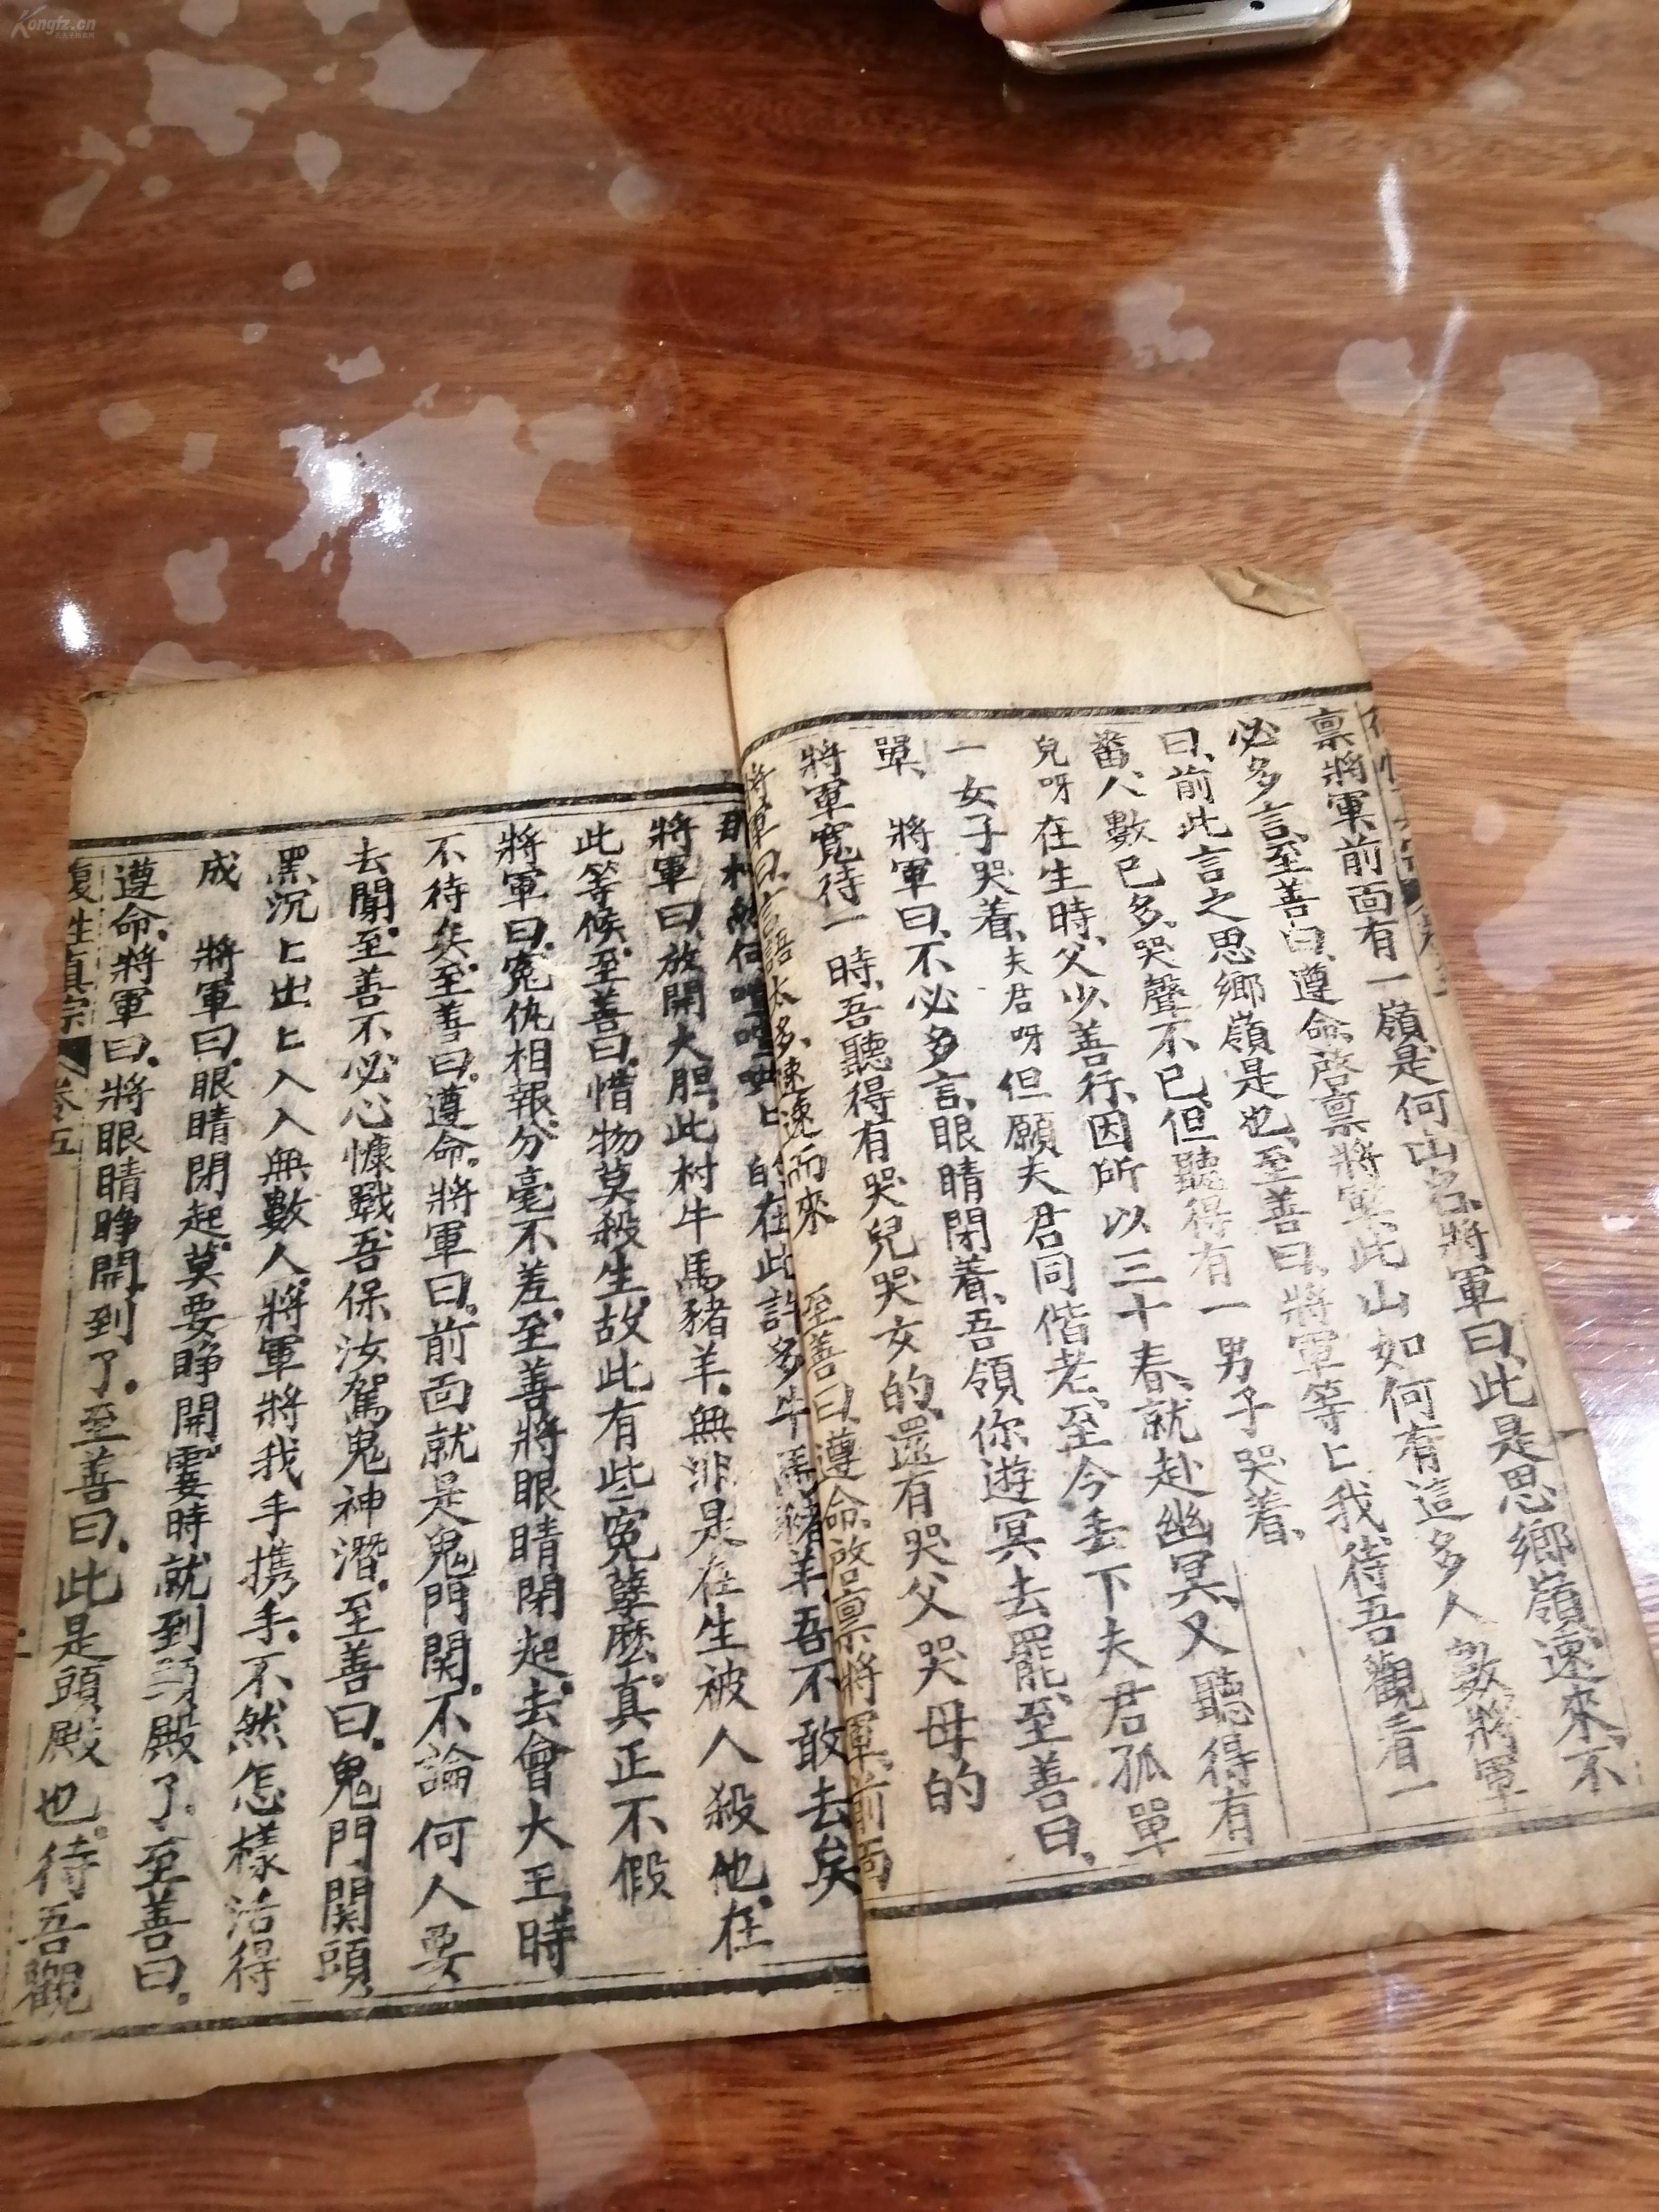 稟將軍、前面有一嶺、是何山名、將軍曰、此是思鄉嶺、速來、不
必多言、至善曰、遵命、啓稟將軍、此山如何有這多人數、將軍
曰、前此言之思鄉嶺是也、至善曰、將軍等〻我、待吾觀看一
畨、人數已多、哭聲不已、但聽得有一男子哭着、
兒呀在生時、父少善行、因所以三十春、就赴幽冥、又聽得有
一女子哭着、夫君呀但願夫君同偕老、至今丢下夫君孤單
單、將軍曰、不必多言、眼睛閉着、吾領你遊冥去罷、至善曰、
將軍寬待一時、吾聽得有哭兒哭女的、還有哭父哭母的
將軍曰、言語太多、速速而來 至善曰、遵命、啓稟將軍、前面
的在此許多牛馬豬羊、吾不敢去矣
將軍曰、放開大胆、此村牛馬豬羊、無非是在生被人殺他、在
此等候、至善曰、惜物莫殺生、故此有些冤孽麽、真正不假
將軍曰、冤仇相報、分毫不差、至善將眼睛閉起、去會大王、時
不待矣、至善曰、遵命、將軍曰、前面就是鬼門関、不論何人要
去闖、至善不必心慷戰、吾保汝駕鬼神潛、至善曰、鬼門関頭、
黑沉〻出〻入入無數人、將軍將我手携手、不然怎樣活得
成 將軍曰、眼睛閉起、莫要睜開、霎時就到頭殿了、至善曰、
遵命、將軍曰、將眼睛睜開、到了、至善曰、此是頭殿也、待吾觀
復性真宗 卷五
Kongfz.cn